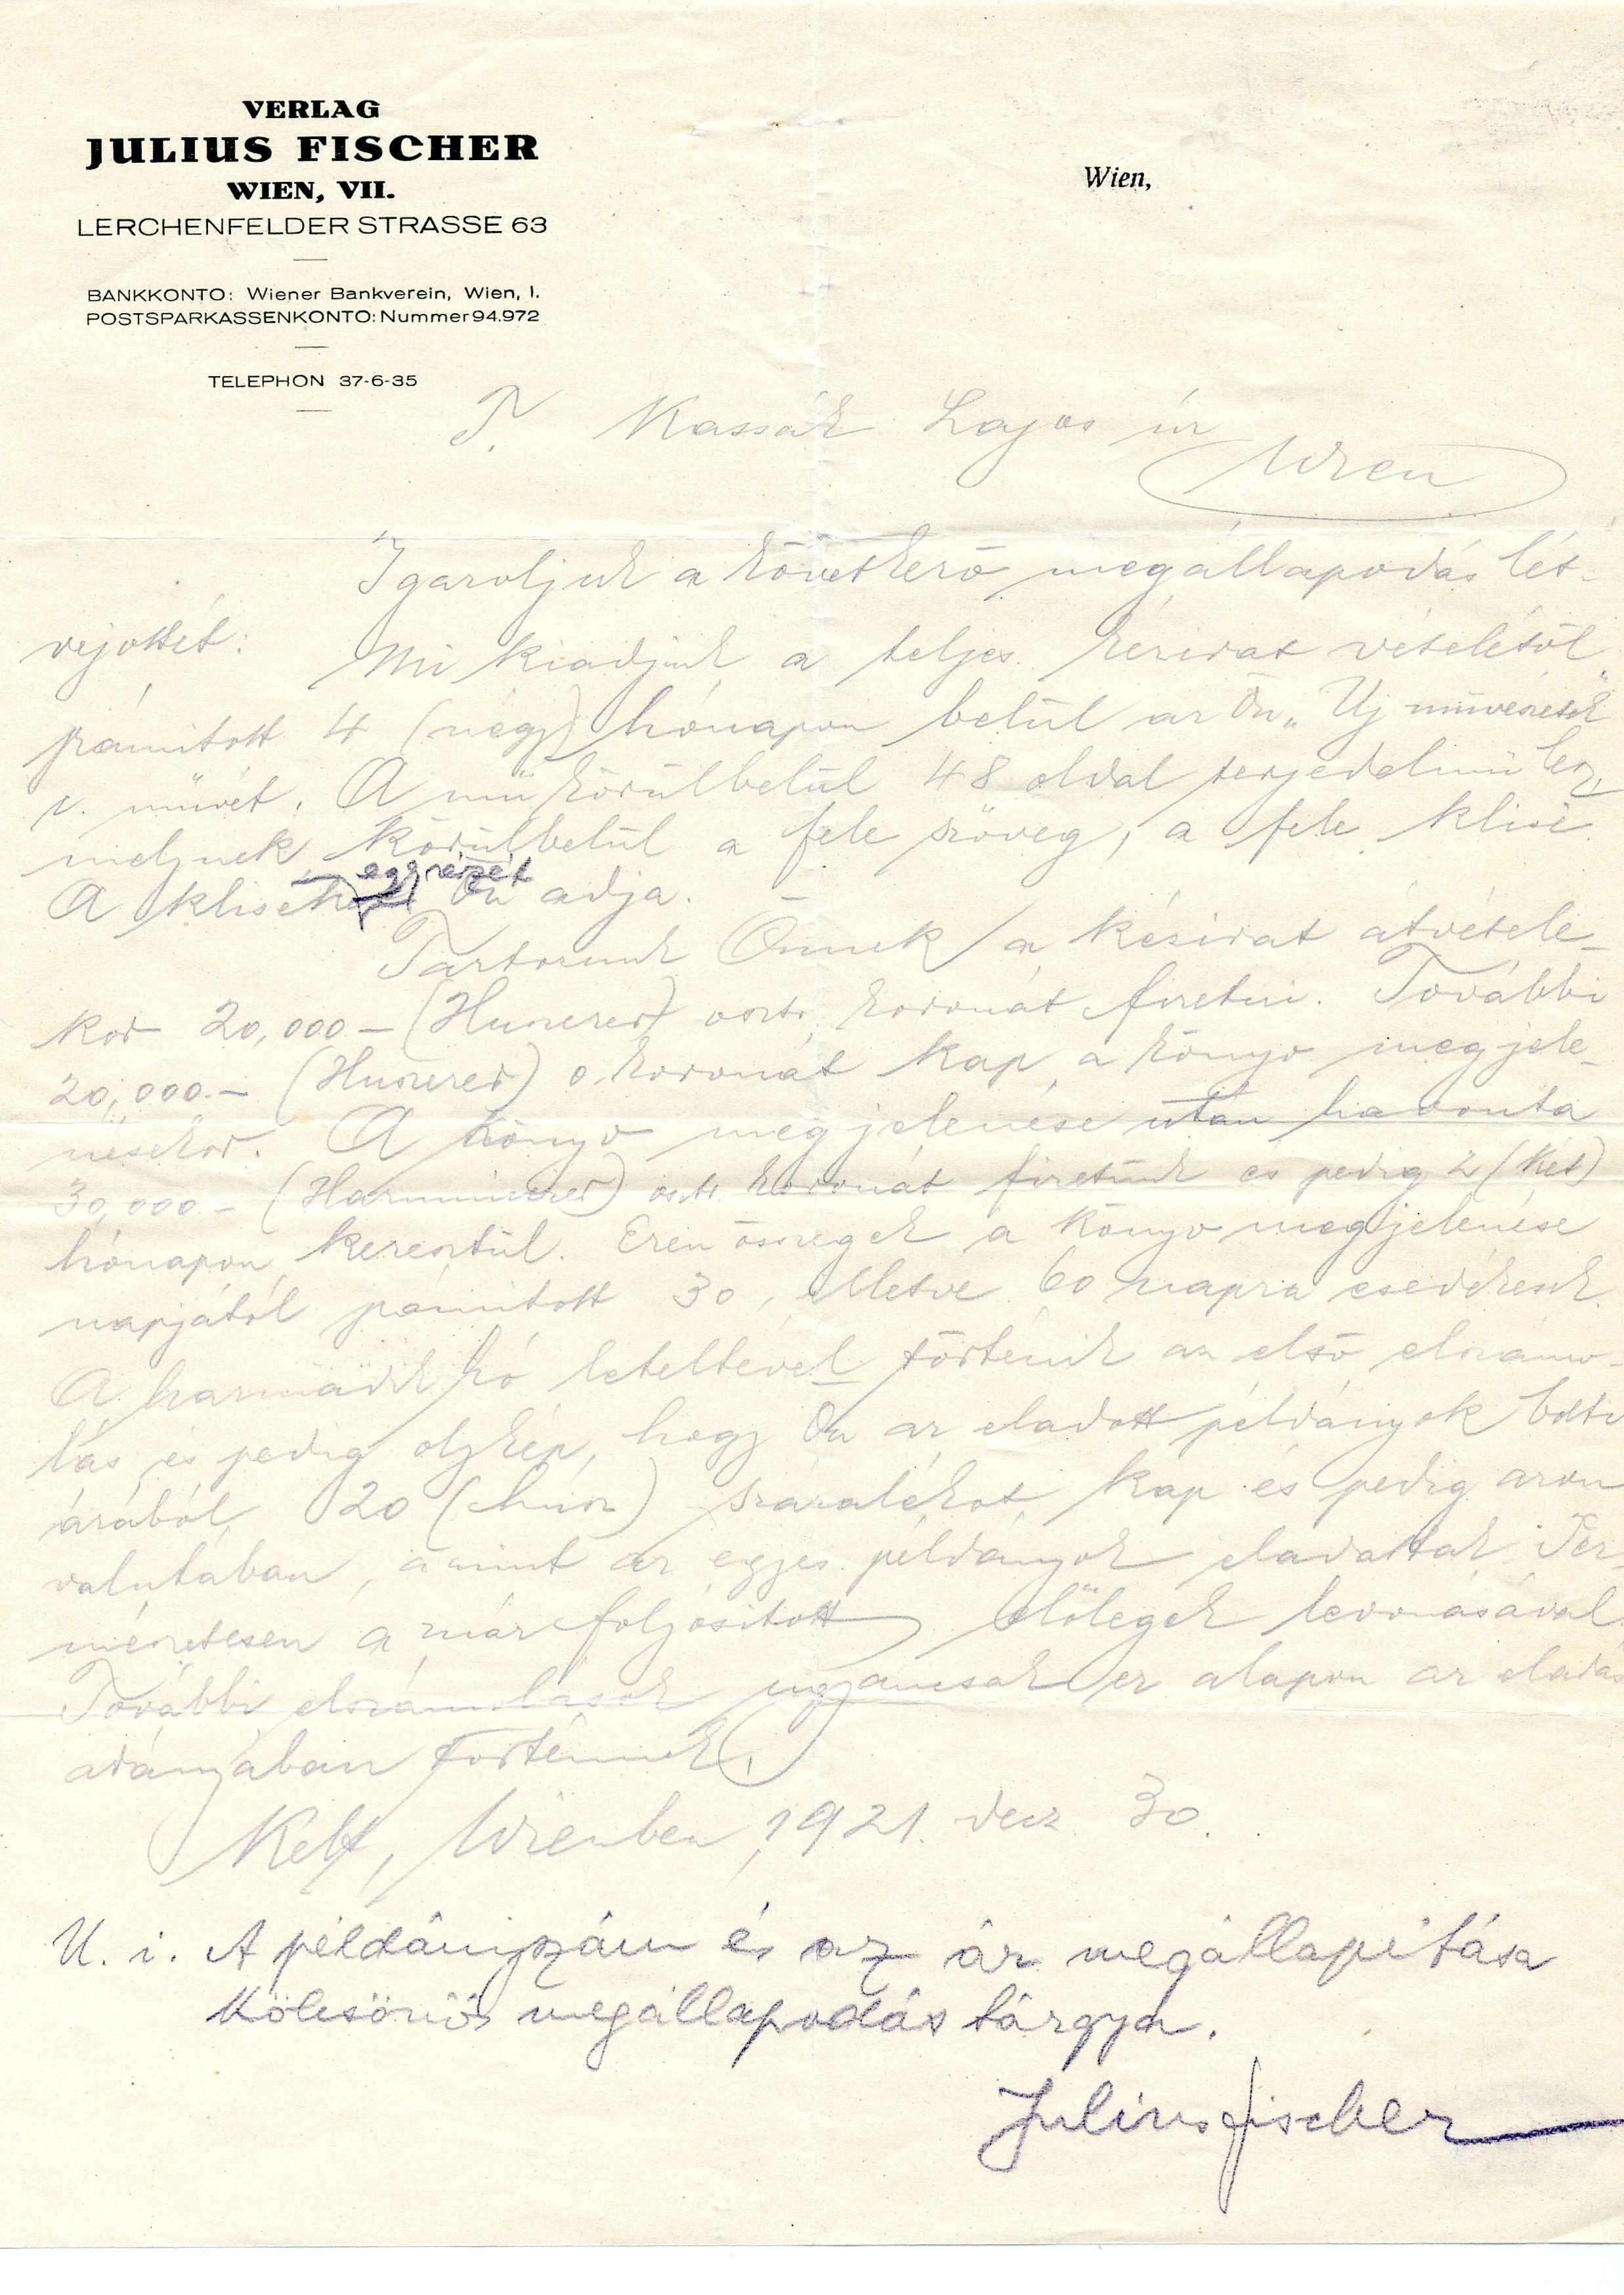 VERLAG
JULIUS FISCHER
WIEN, VII.
LERCHENFELDER STRASSE 63
BANKKONTO: Wiener Bankverein, Wien, I.
POSTSPARKASSENKONTO: Nummer 94.972
TELEPHON 37-6-35
Wien,
T. Kassák Lajos úr
Wien
Igazoljuk a következő megállapodás lét-
rejöttét: Mi kiadjuk a teljes kézirat vételétől
számitott 4 (négy) hónapon belül az Ön „Uj művészek"
c. művét. A mű körülbelül 48 oldal terjedelmü lesz,
melynek körülbelül a fele szöveg, a fele klisé.
egyrészét
A klisék Ön adja. —
Tartozunk Önnek a kézirat átvétele-
kor 20,000.— (Huszezer) osztr. koronát fizetni. További
20,000.— (Huszezer) o. koronát kap a könyv megjele-
nésekor. A könyv megjelenése után havonta
30,000.— (Harmincezer) osztr. koronát fizetünk és pedig 2 (két)
hónapon keresztül. Ezen összegek a könyv megjelenése
napjától számitott 30, illetve 60 napra esedékesek.
A harmadik hó leteltével történik az első elszámo-
lás és pedig olykép, hogy Ön az eladott példányok bolti
árából 20 (húsz) százalékot kap és pedig azon
valutában, amint az egyes példányok eladattak. Ter-
mészetesen a már folyósitott előlegek levonásával.
További elszámolások ugyancsak ez alapon az eladás
arányában történnek.
Kelt, Wienben, 1921. dec 30.
U. i. A példányszám és az ár megállapitása
kölcsönös megállapodás tárgya.
Julius Fischer